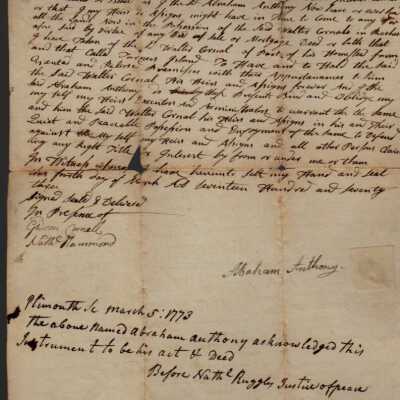 or that if my Heirs or Assigns might have in Time to Come to any
all the Land Now in the Possession of the sd Walter Cornal in Rochester
after his by Virtue of any Deed of Sale or Mortgage Deed or Other that
I have Taken of the sd Walter Cornal of Part of his Homested farm
and that Calld Island To Have and To Hold the said
Granted and Releised Premises with their Appurtenances to him
the Said Walter Cornal his Heirs and Assigns forever And I the
Said Abraham Anthony Do hereby Oblige
my self my Heirs Executors and Administrators to warrant the same
and him the said Walter Cornal his Heirs and Assigns in his and their
Quiet and Peaceable Possesion and Enjoyment of the same to Defend
against my self my Heirs and Assigns and all other Persons Claim
ing any Right Title or Interest by from or under me or them
In Witness whereof I have hereunto sett my Hand and seal
this fourth Day of March AD Seventeen Hundred and seventy
three
Signed Seald & Deliverd
In Presence of
Nathll Hammond
Abraham Anthony
Plimouth Sc March 5: 1773
the above Named Abraham Anthony acknowledged this
Instrument to be his act & Deed
Before Nathl Ruggles Justice of peace